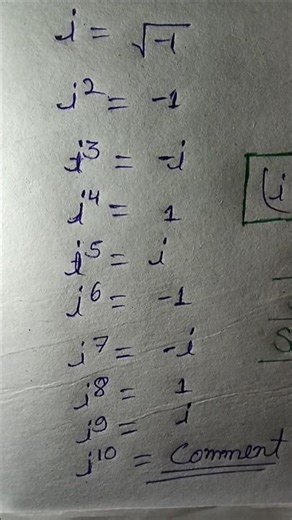 i = √-1
i² = -1
i³ = -i
i⁴ = 1
i⁵ = i
i⁶ = -1
i⁷ = -i
i⁸ = 1
i⁹ = i
i¹⁰ = Comment
(i
S